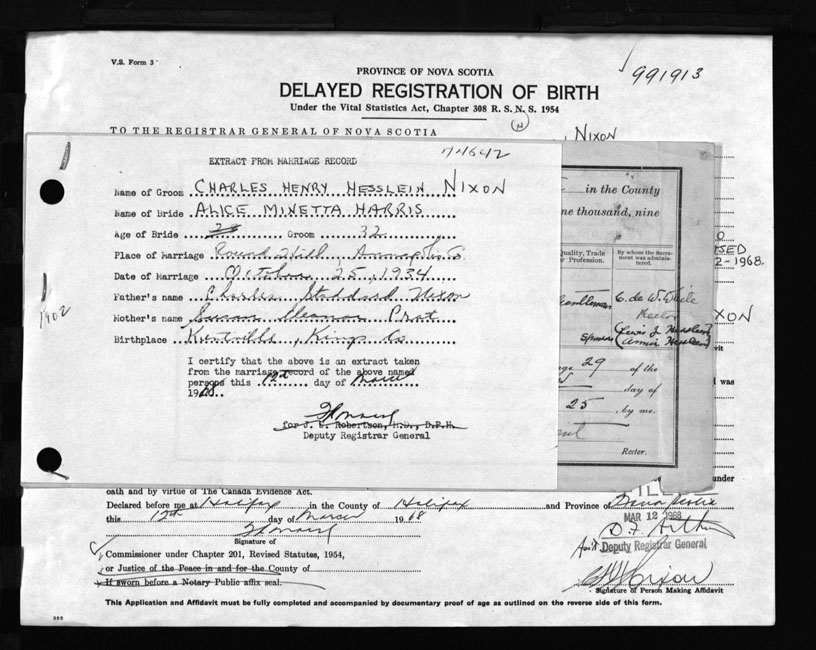 V.S. Form 3
991913
PROVINCE OF NOVA SCOTIA
DELAYED REGISTRATION OF BIRTH
Under the Vital Statistics Act, Chapter 308 R. S. N. S. 1954
TO THE REGISTRAR GENERAL OF NOVA SCOTIA
, NIXON
EXTRACT FROM MARRIAGE RECORD
Name of Groom CHARLES HENRY HESSLEIN NIXON
Name of Bride ALICE MINETTA HARRIS
Age of Bride Groom 32
Place of Marriage Round Hill, Annapolis Co.
Date of Marriage October 25, 1934
Father's name Charles Stoddard Nixon
Mother's name Susan Eleanor Prat
Birthplace Kentville, Kings Co
1902
I certify that the above is an extract taken
from the marriage record of the above named
persons this 12th day of March
1968
for J. E. Robertson, M.D., D.P.H.
Deputy Registrar General
in the County
ne thousand, nine
uality, Trade
r Profession.
By whom the Sacra-
ment was adminis-
tered.
Gentleman
C. de W. White
Rector
Sponsors
(Lewis J. Hesslein
(Annie Hesslein
29 of the
day of
25 , by me.
Rector.
2-1968
XON
vit
was
under
oath and by virtue of The Canada Evidence Act.
Declared before me at Halifax in the County of Halifax and Province of Nova Scotia
this 12th day of March 1968
MAR 12 1968
Signature of
Ass't Deputy Registrar General
Commissioner under Chapter 201, Revised Statutes, 1954,
or Justice of the Peace in and for the County of
If sworn before a Notary Public affix seal.
CHH Nixon
Signature of Person Making Affidavit
This Application and Affidavit must be fully completed and accompanied by documentary proof of age as outlined on the reverse side of this form.